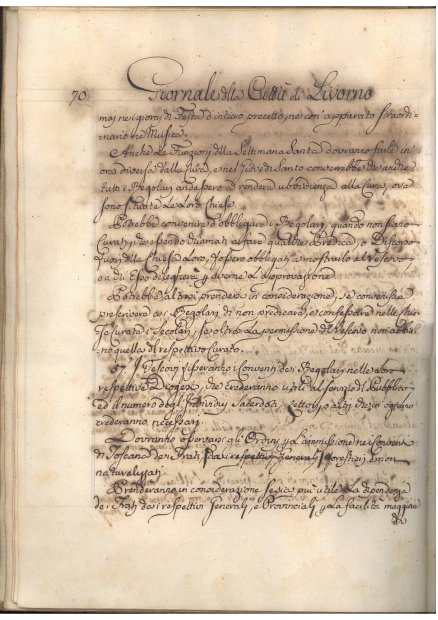 70 Giornale della Città di Livorno
mai ne i giorni di Festa d'intiero precetto, ne con apparato straordi-
nario ne Musica.
Anche le Funzioni della Settimana Santa dovranno farle in
ora diversa dalla Cura, e nel Giovedì Santo converrebbe che anche
tutti i Regolari andassero a rendere ubbidienza alla Cura, ova
sono situate le Loro Chiese.
Potrebbe convenire d'obbligare i Regolari, quando non siano
Curati, volendo chiamare a fare qualche Predica, o Discorso
fuori della Chiesa Loro, d'essere obbligati a mostrarlo al Vescovo
o a chi Esso delegherà, e averne l'approvazione
Potrebbe altresì prendersi in considerazione, se convenisse
prescrivere ai Regolari di non predicare, e confessare nelle
Curate i Secolari, se oltre la permissione del Vescovo non abbia-
no quella del respettivo Curato.
57. I Vescovi esaminino i Conventi dei Regolari nelle loro
respettive Diogesi, che crederanno utili al servizio del Pubblico
ed il numero degl'Individui Sacerdoti, che ognuno
crederanno necessari.
Dovranno osservarsi gli Ordini per l'ammissione nei Conventi
di Toscana dei Frati forestieri, e non
naturalizzati.
Prenderanno in considerazione se sia più utile la dipendenza
dei Frati dai respettivi Generali, e Provinciali per la facilità maggiore